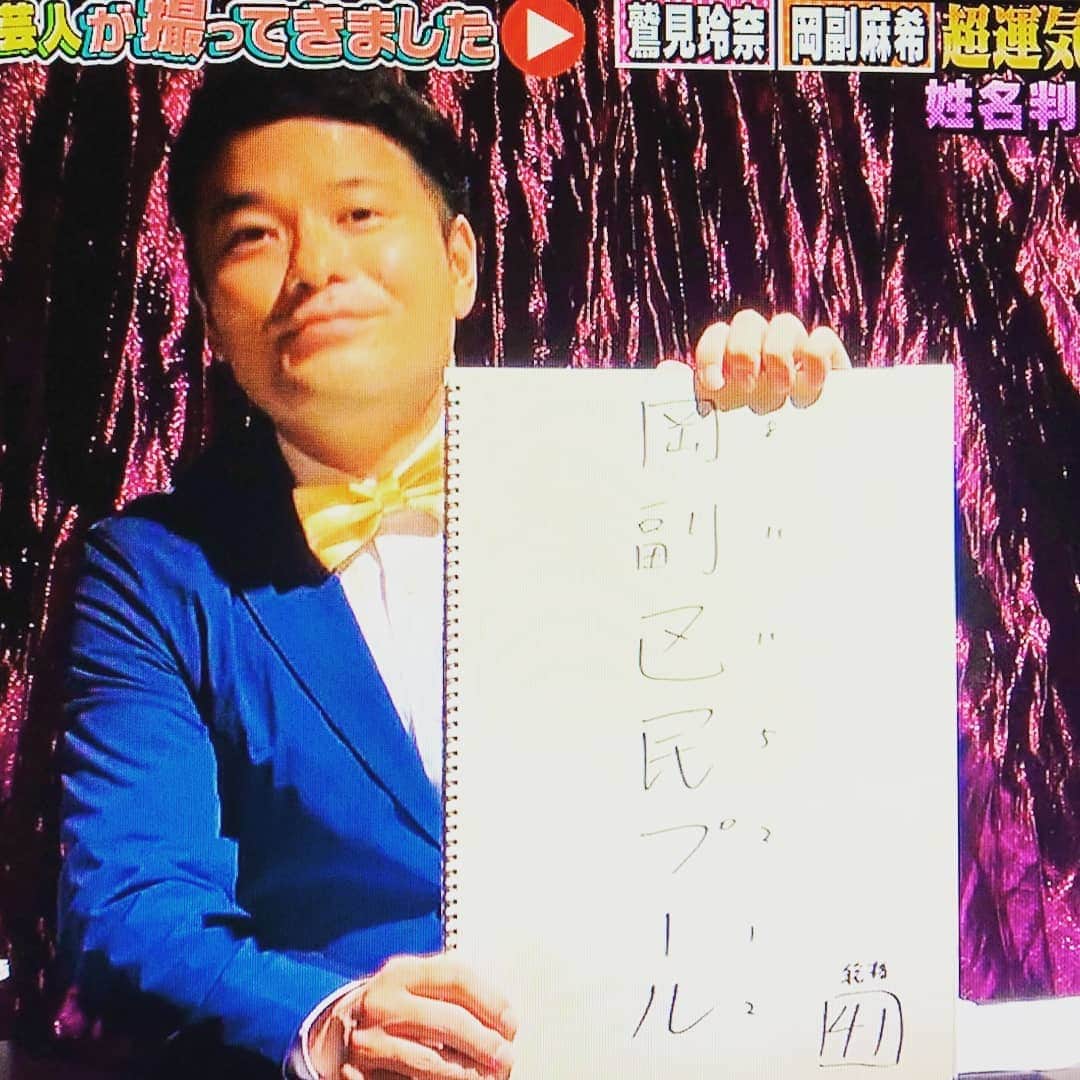 芸人が撮ってきました
鷲見玲奈 岡副麻希 超運気
姓名判
岡副区民プール
8
11
11
5
2
1
2
総格
41